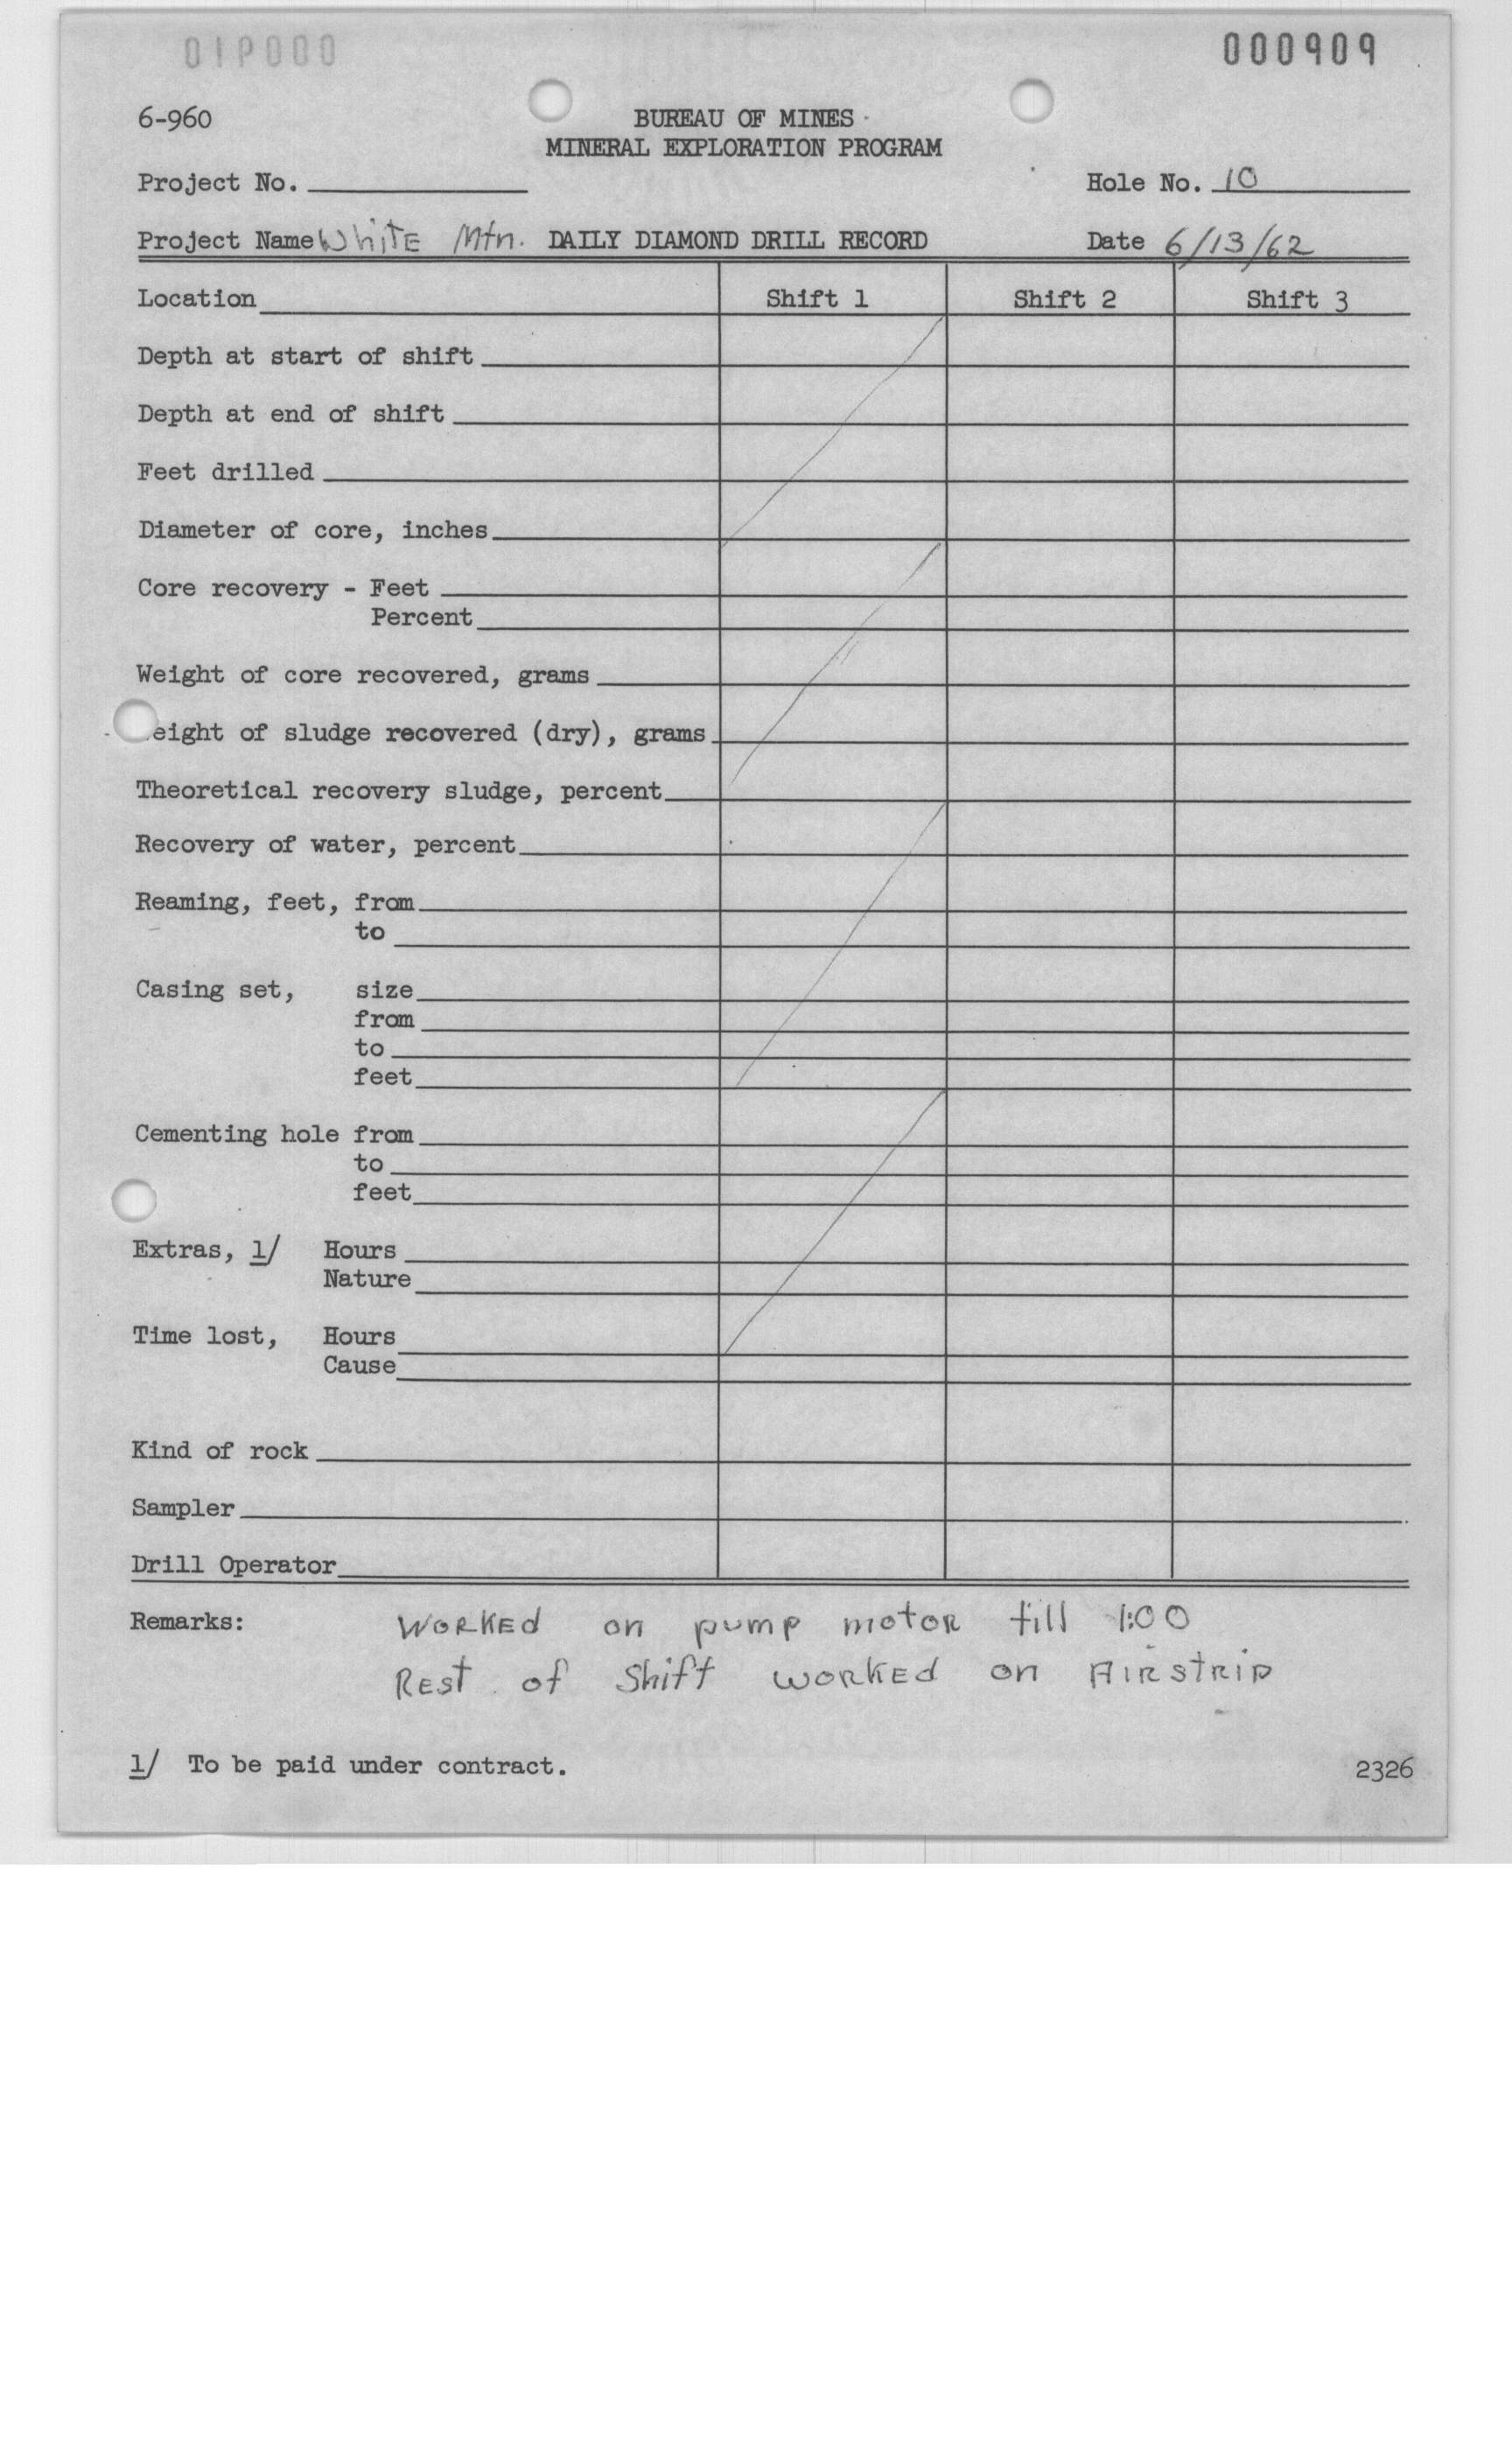 000909
6-960
BUREAU OF MINES
MINERAL EXPLORATION PROGRAM
Project No.
Hole No. 10
Project Name WhiTE Mtn. DAILY DIAMOND DRILL RECORD Date 6/13/62
Location Shift 1 Shift 2 Shift 3
Depth at start of shift
Depth at end of shift
Feet drilled
Diameter of core, inches
Core recovery - Feet
Percent
Weight of core recovered, grams
eight of sludge recovered (dry), grams
Theoretical recovery sludge, percent
Recovery of water, percent
Reaming, feet, from
to
Casing set, size
from
to
feet
Cementing hole from
to
feet
Extras, 1/ Hours
Nature
Time lost, Hours
Cause
Kind of rock
Sampler
Drill Operator
Remarks: WORKED on pump motor till 1:00
REst of Shift WORKED on AIRstRip
1/ To be paid under contract.
2326